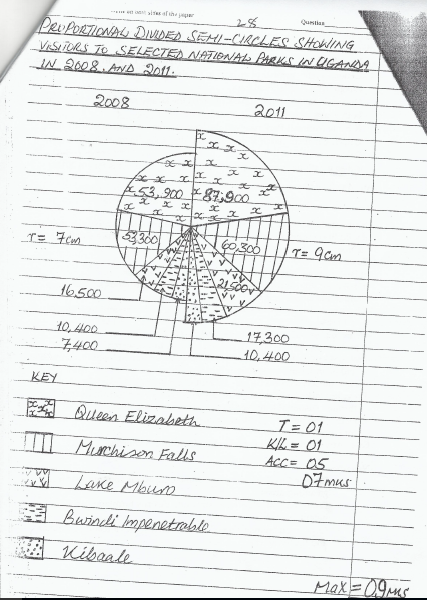 on both sides of the paper
28
Question
PROPORTIONAL DIVIDED SEMI-CIRCLES SHOWING
VISITORS TO SELECTED NATIONAL PARKS IN UGANDA
IN 2008 AND 2011.
2008
2011
53,900
87,900
r = 7cm
53,300
60,300
r = 9cm
21,500
16,500
10,400
7,400
17,300
10,400
KEY
Queen Elizabeth
Murchison Falls
Lake Mburo
Bwindi Impenetrable
Kibaale
T = 01
K/L = 01
ACC = 05
07mks
Max = 09mks